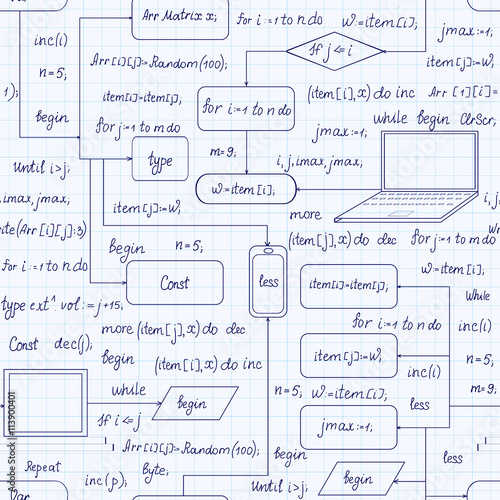 Arr Matrix x;
for i:=1 to n do
w:=item[i],
jmax:=1;
inc(i)
if j<=i
item[j]:=w,
n=5;
Arr[i][j]:=Random(100);
1);
item[i]=item[j];
for i:=1 to n do
(item[i],x) do inc
Arr [1][i]=
begin
for j:=1 to m do
jmax:=1;
while begin ClrScr;
type
m=9;
until i>j;
i, j, imax, jmax;
w:=item[i],
imax, jmax;
item[j]:=w,
more
i, j,
rite(Arr[i][j]:3)
begin
n=5;
(item[j],x) do dec
for j:=1 to m do
for i:=1 to n do
w:=item[i];
Const
less
item[i]=item[j],
while
type ext^ vol:=j+15;
for i:=1 to n do
inc(i)
Const dec(j);
more (item[j],x) do dec
item[j]:=w,
n=5;
begin
(item[i],x) do inc
inc(i)
while
begin
n=5;
w:=item[i];
m=9;
less
if i<=j
jmax:=1;
Arr[i][j]:=Random(100);
begin
less
Repeat
inc(p);
Byte;
begin
Var
until i>j;
113900401
Adobe Stock